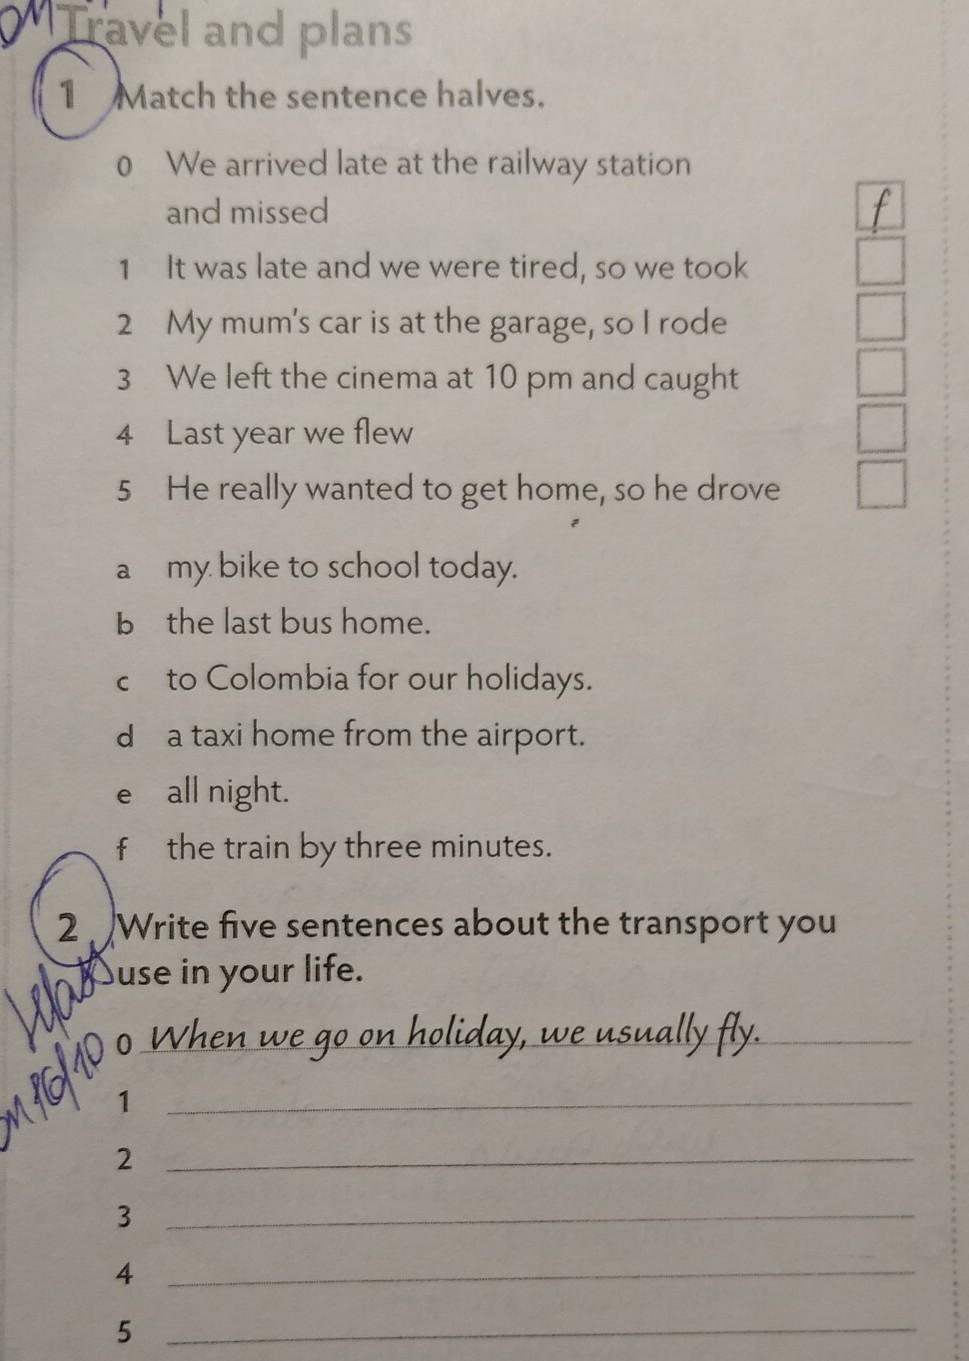 Travel and plans
1 Match the sentence halves.
0 We arrived late at the railway station
and missed
f
1 It was late and we were tired, so we took
2 My mum's car is at the garage, so I rode
3 We left the cinema at 10 pm and caught
4 Last year we flew
5 He really wanted to get home, so he drove
a my bike to school today.
b the last bus home.
c to Colombia for our holidays.
d a taxi home from the airport.
e all night.
f the train by three minutes.
2 Write five sentences about the transport you
use in your life.
0 When we go on holiday, we usually fly.
1
2
3
4
5